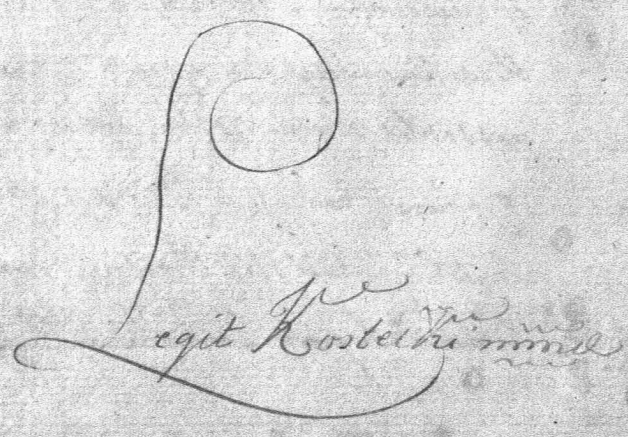 Legit Kostecki